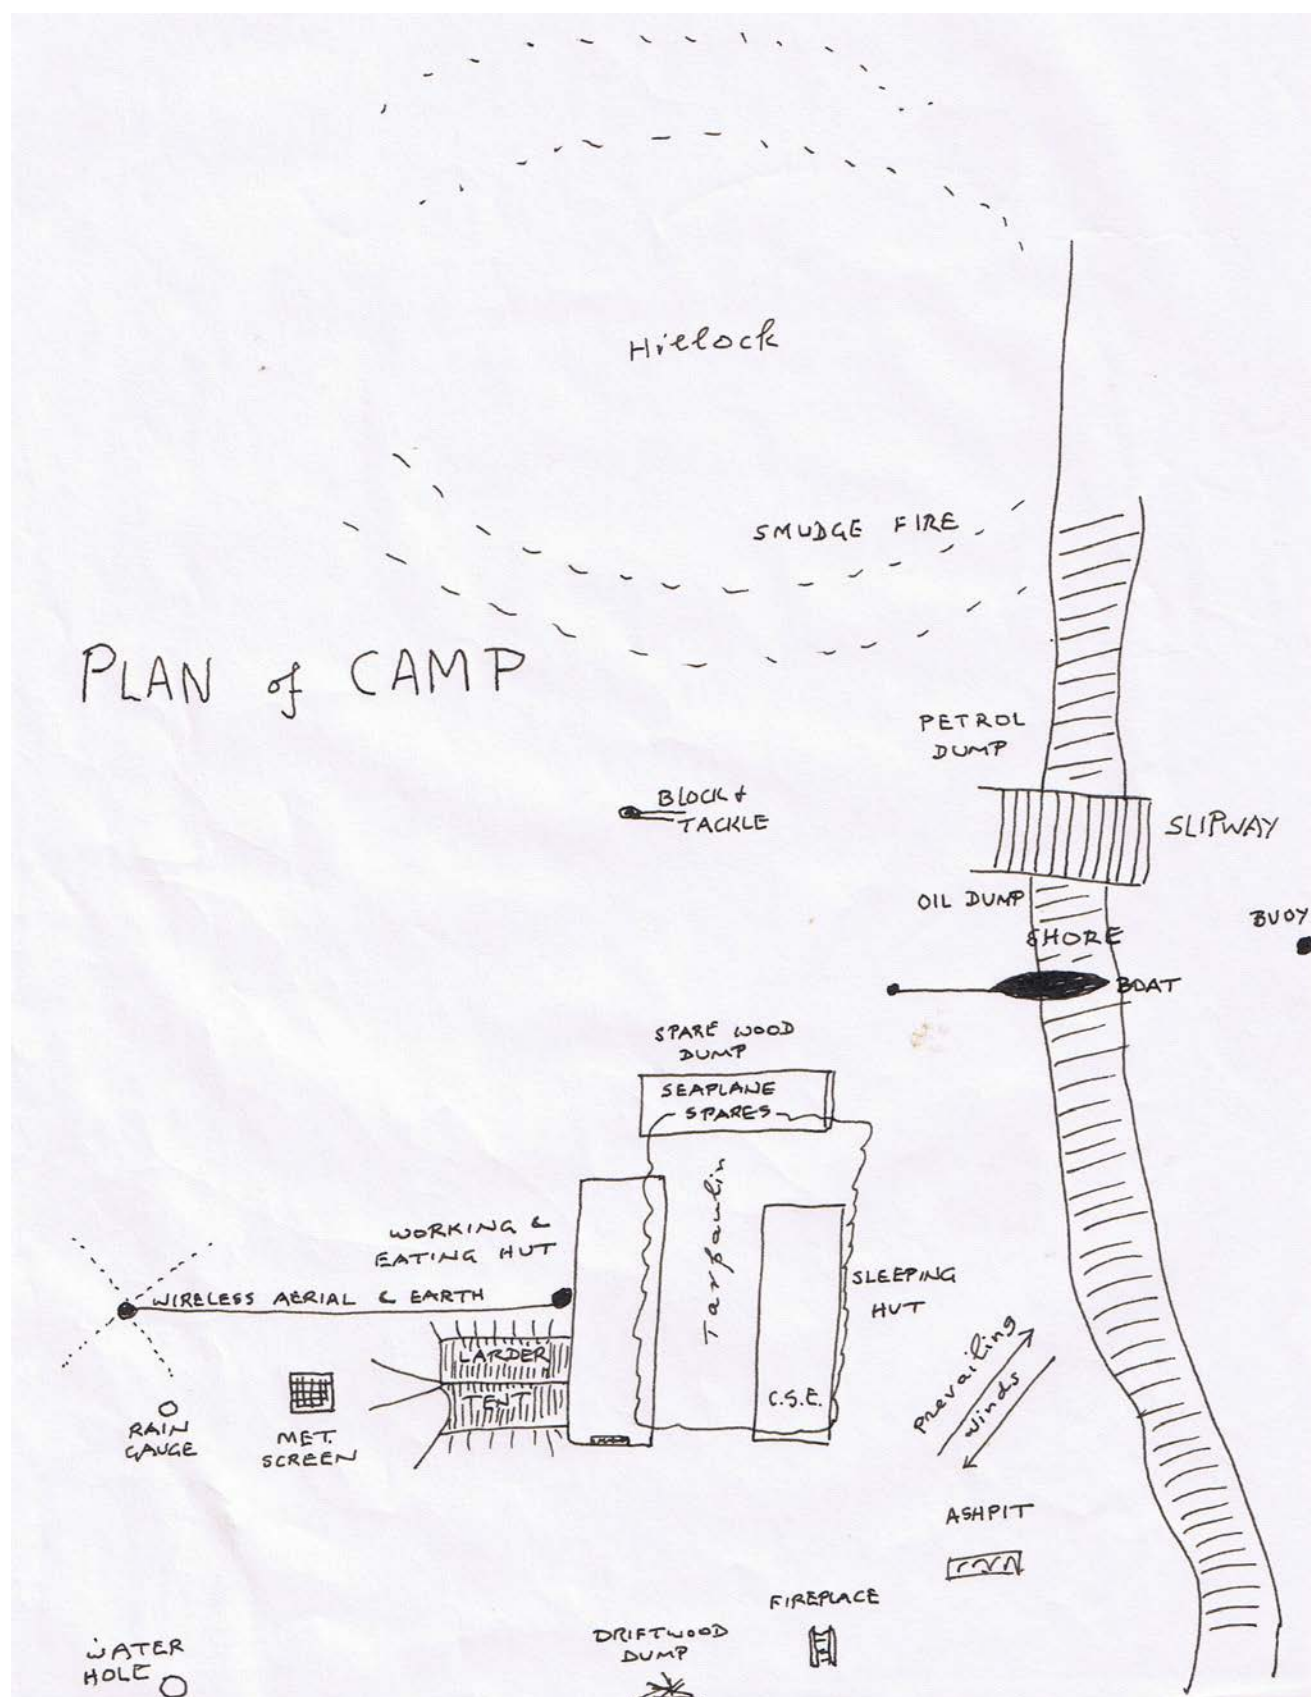 Hillock
SMUDGE FIRE
PLAN of CAMP
PETROL
DUMP
BLOCK &
TACKLE
SLIPWAY
OIL DUMP
BUOY
SHORE
BOAT
SPARE WOOD
DUMP
SEAPLANE
SPARES
Tarpaulin
WORKING &
EATING HUT
WIRELESS AERIAL & EARTH
SLEEPING
HUT
LARDER
TENT
C.S.E.
prevailing
winds
RAIN
GAUGE
MET.
SCREEN
ASHPIT
FIREPLACE
DRIFTWOOD
DUMP
WATER
HOLE